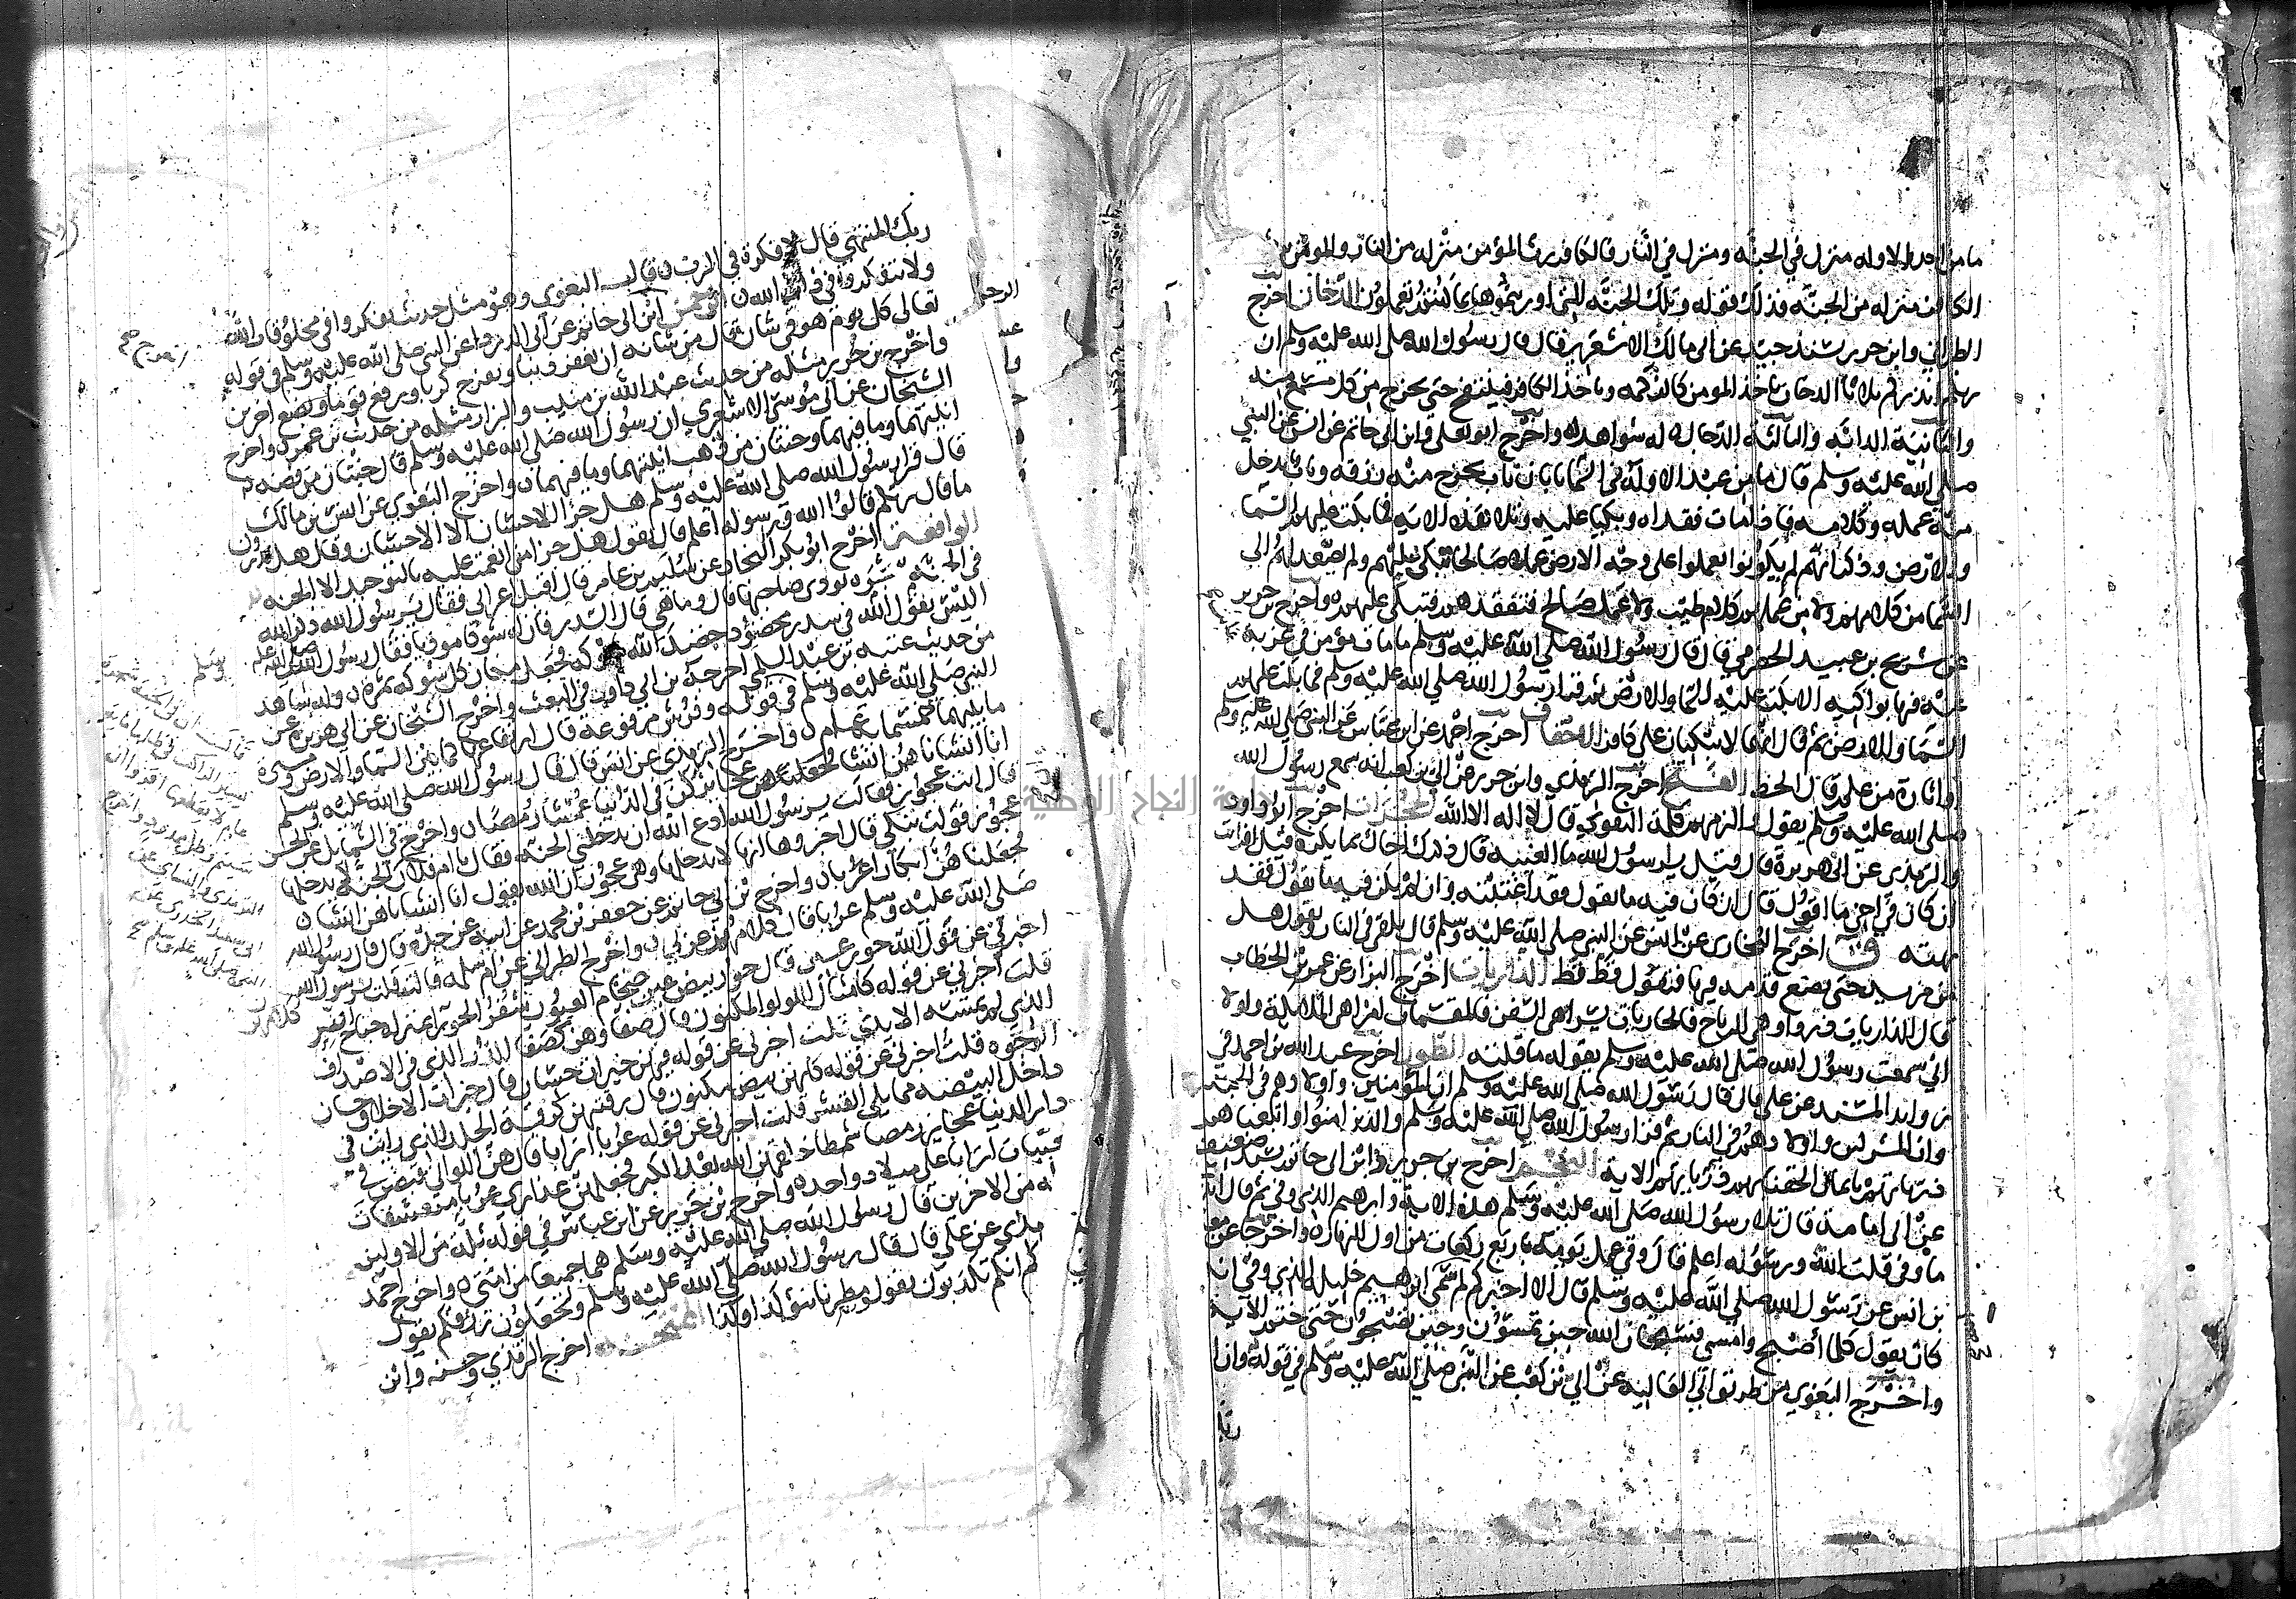 ما من احد الا وله منزل في الجنة ومنزل في النار فالكافر يرث المؤمن منزله من النار والمؤمن يرث
الكافر منزله من الجنة فذلك قوله وتلك الجنة التي اورثتموها بما كنتم تعملون الدخان اخرج
الطبراني وابن جرير بسند جيد عن ابي مالك الاشعري قال قال رسول الله صلى الله عليه وسلم ان
ربكم انذركم ثلاثا الدخان ياخذ المومن كالزكمة وياخذ الكافر فينتفخ حتى يخرج من كل مسمع منه
والثانية الدابة والثالثة الدجال له شواهد واخرج ابو يعلى وابن ابي حاتم عن انس عن النبي
صلى الله عليه وسلم قال ما من عبد الا وله في السما بابان باب يخرج منه رزقه وباب يدخل
منه عمله وكلامه فاذا مات فقداه وبكيا عليه وتلا هذه الاية فما بكت عليهم السما
والارض وذكر انهم لم يكونوا يعملوا على وجه الارض عملا صالحا تبكي عليهم ولم يصعد لهم الى
السما من كلامهم ولا من عملهم كلام طيب ولا عمل صالح فتفقدهم فتبكي عليهم واخرج بن جرير
عن شريح بن عبيد الحضرمي قال قال رسول الله صلى الله عليه وسلم ما مات مؤمن في غربة
غابت عنه فيها بواكيه الا بكت عليه السما والارض ثم قرا رسول الله صلى الله عليه وسلم فما بكت عليهم
السما والارض ثم قال انهما لا يبكيان على كافر الاحقاف اخرج احمد عن ابن عباس عن النبي صلى الله عليه وسلم
او اثارة من علم قال الخط الفتح اخرج الترمذي وابن جرير عن ابي بن كعب انه سمع رسول الله
صلى الله عليه وسلم يقول والزمهم كلمة التقوى قال لا اله الا الله الحجرات اخرج ابو داود
والترمذي عن ابي هريرة قال قيل يا رسول الله ما الغيبة قال ذكرك اخاك بما يكره قيل افرايت
ان كان في اخي ما اقول قال ان كان فيه ما تقول فقد اغتبته وان لم يكن فيه ما تقول فقد
بهته ق اخرج البخاري عن انس عن النبي صلى الله عليه وسلم قال يلقى في النار وتقول هل
من مزيد حتى يضع قدمه فيها فتقول قط قط الذاريات اخرج البزار عن عمر بن الخطاب
قال الذاريات ذروا هي الرياح فالجاريات يسرا هي السفن فالمقسمات امرا هي الملائكة ولولا
اني سمعت رسول الله صلى الله عليه وسلم يقوله ما قلته الطور اخرج عبد الله بن احمد في
زوايد المسند عن علي قال قال رسول الله صلى الله عليه وسلم ان المؤمنين واولادهم في الجنة
وان المشركين واولادهم في النار ثم قرا رسول الله صلى الله عليه وسلم والذين امنوا واتبعناهم
ذرياتهم بايمان الحقنا بهم ذرياتهم الاية النجم اخرج بن جرير وابن ابي حاتم بسند ضعيف
عن ابي امامة قال تلا رسول الله صلى الله عليه وسلم هذه الاية وابراهيم الذي وفى ثم قال اتدري
ما وفى قلت الله ورسوله اعلم قال وفى عمل يومه باربع ركعات من اول النهار واخرجا عن معاذ
بن انس عن رسول الله صلى الله عليه وسلم قال الا اخبركم لم سمى ابراهيم خليله الذي وفى انه
كان يقول كلما اصبح وامسى فسبحان الله حين تمسون وحين تصبحون حتى ختم الاية
واخرج البغوي من طريق ابي العالية عن ابي بن كعب عن النبي صلى الله عليه وسلم في قوله وان الى
ربك المنتهى قال لا فكرة في الرب قال البغوي وهو مثل حديث تفكروا في مخلوقات الله
ولا تتفكروا في ذات الله الرحمن ابن ابي حاتم عن ابي الدردا عن النبي صلى الله عليه وسلم في قوله
تعالى كل يوم هو في شان قال من شانه ان يغفر ذنبا ويفرج كربا ويرفع قوما ويضع اخرين
واخرج بن جرير مثله من حديث عبد الله بن منيب والبزار مثله من حديث بن عمر واخرج
الشيخان عن ابي موسى الاشعري ان رسول الله صلى الله عليه وسلم قال جنتان من فضة
انيتهما وما فيهما وجنتان من ذهب انيتهما وما فيهما واخرج البغوي عن انس بن مالك
قال قرا رسول الله صلى الله عليه وسلم هل جزا الاحسان الا الاحسان وقال هل تدرون
ما قال ربكم قالوا الله ورسوله اعلم قال يقول هل جزا من انعمت عليه بالتوحيد الا الجنة
الواقعة اخرج ابو بكر النجاد عن سليم بن عامر قال اقبل اعرابي فقال يا رسول الله ذكر الله
في الجنة شجرة تؤذي صاحبها قال وما هي قال السدر فان له شوكا موذيا فقال رسول الله صلى الله عليه وسلم
اليس يقول الله في سدر مخضود خضد الله شوكه فجعل مكان كل شوكة ثمرة وله شاهد
من حديث عتبة بن عبد السلمي اخرجه بن ابي داود في البعث واخرج الشيخان عن ابي هريرة عن
النبي صلى الله عليه وسلم في قوله وفرش مرفوعة قال ارتفاعها كما بين السما والارض ومسيرة
ما بينهما خمسماية عام واخرج الترمذي عن انس قال قال رسول الله صلى الله عليه وسلم
انا انشاناهن انشا عجايز كن في الدنيا عمشا رمصا واخرج في الشمايل عن الحسن
قال اتت عجوز فقالت يا رسول الله ادع الله ان يدخلني الجنة فقال يا ام فلان ان الجنة لا يدخلها
عجوز فولت تبكي قال اخبروها انها لا تدخلها وهي عجوز ان الله يقول انا انشاناهن انشا
فجعلناهن ابكارا عربا واخرج بن ابي حاتم عن جعفر بن محمد عن ابيه عن جده قال قال رسول الله
صلى الله عليه وسلم عربا قال كلامهن عربي واخرج الطبراني عن ام سلمة قالت قلت يا رسول الله
اخبرني عن قول الله حور عين قال حور بيض عين ضخام العيون شفر الحورا بمنزلة جناح النسر
قلت اخبرني عن قوله كامثال اللولو المكنون قال صفاوهن كصفا الدر الذي في الاصداف
الذي لم تمسه الايدي قلت اخبرني عن قوله فيهن خيرات حسان قال خيرات الاخلاق حسان
الوجوه قلت اخبرني عن قوله كانهن بيض مكنون قال رقتهن كرقة الجلد الذي رايت في
داخل البيضة مما يلي القشر قلت اخبرني عن قوله عربا اترابا قال هن اللواتي قبضن في
دار الدنيا عجايز رمصا شمطا خلقهن الله بعد الكبر فجعلهن عذارى عربا متعشقات
محببات اترابا على ميلاد واحد واخرج بن جرير عن ابن عباس في قوله ثلة من الاولين
وثلة من الاخرين قال رسول الله صلى الله عليه وسلم هما جميعا من امتي واخرج احمد
والترمذي عن علي قال قال رسول الله صلى الله عليه وسلم وتجعلون رزقكم يقول
شكركم انكم تكذبون يقولون مطرنا بنو كذا وكذا الممتحنة اخرج الترمذي وحسنه وابن